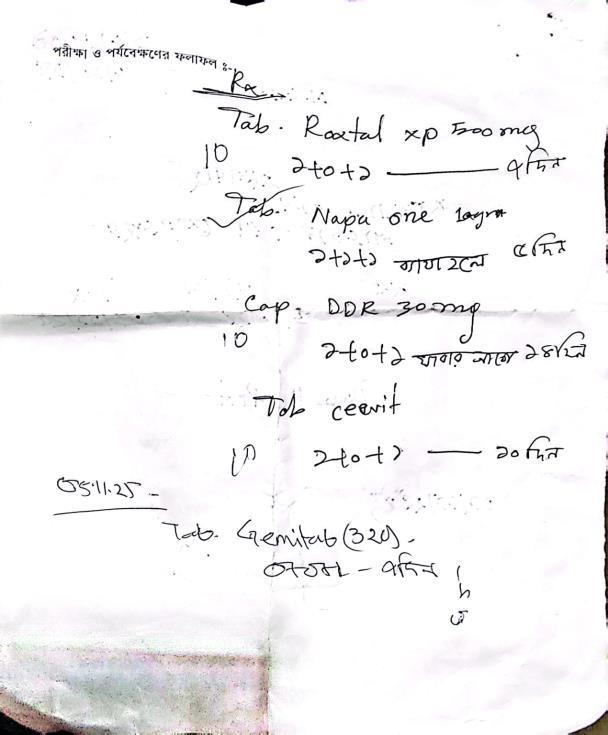 পরীক্ষা ও পর্যবেক্ষণের ফলাফল ঃ-
Rx
Tab. Roxtal xp 500 mg
10 ১+০+১ — ৭ দিন
Tab. Napa one 1 gm
১+১+১ ব্যাথা হলে ৫ দিন
Cap. DDR 30 mg
10 ১+০+১ খাবার আগে ১৪ দিন
Tab ceevit
১+০+১ — ১০ দিন
05.11.25 -
Tab. Gemitab (320) -